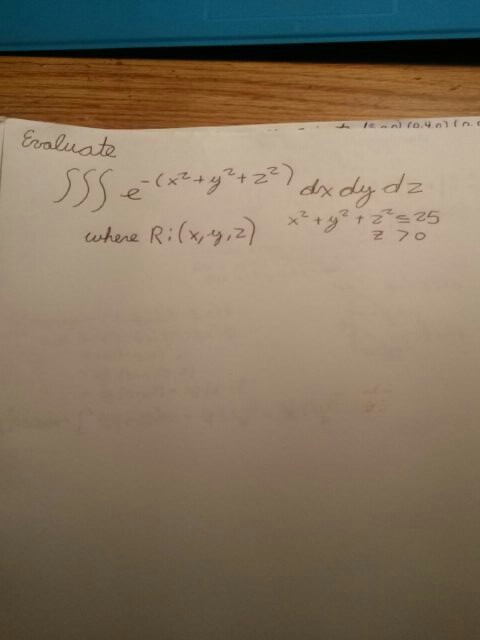 Evaluate
∭ e^-(x²+y²+z²) dx dy dz
where R:(x,y,z) x²+y²+z²≤25
z>0